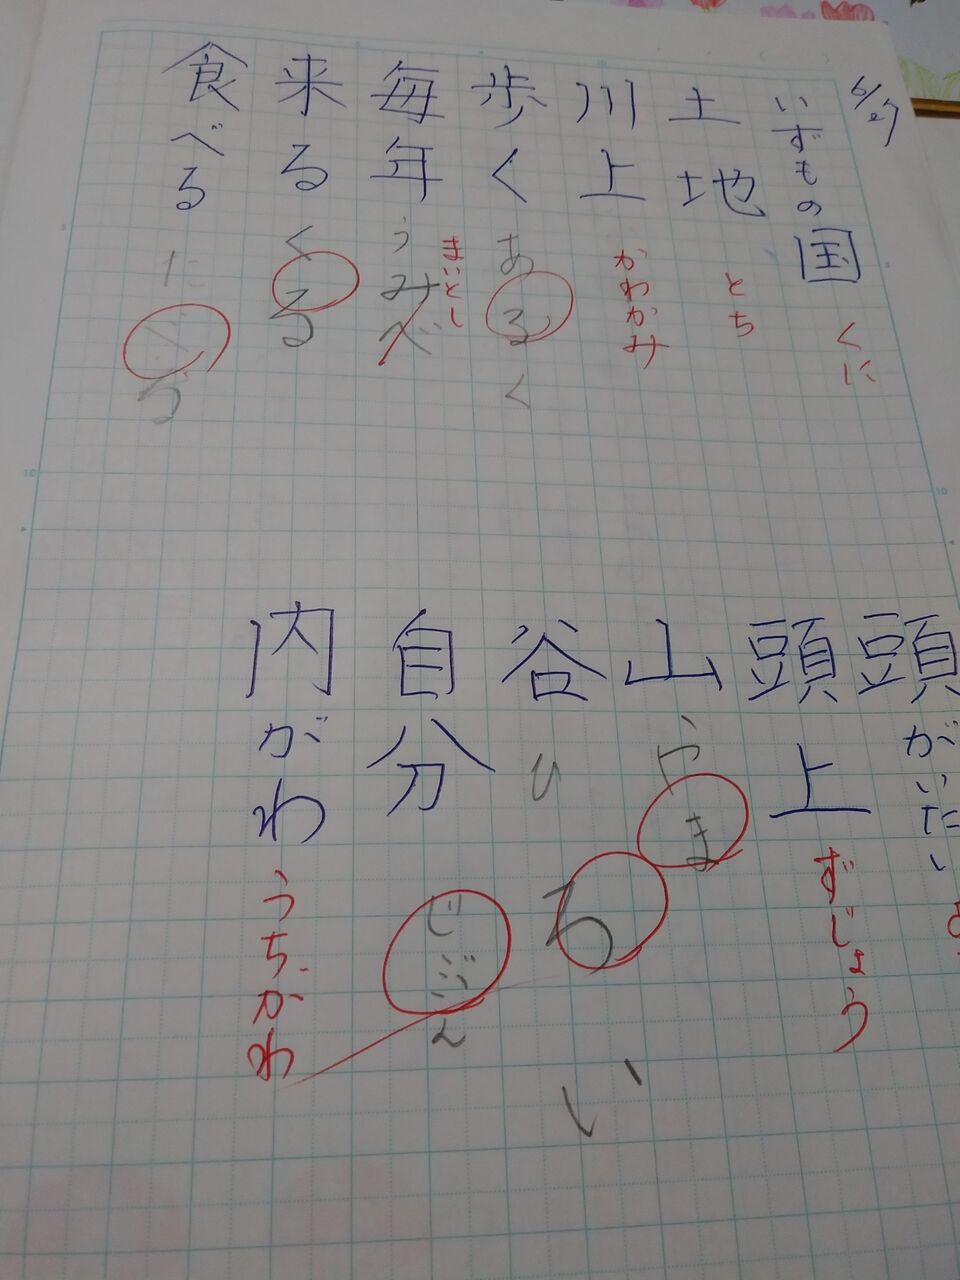 6/27
いずもの国
くに
土地
とち
川上
かわかみ
歩く
あるく
毎年
まいとし
うみべ
来る
くる
食べる
たべる
頭がいたい
頭上
ずじょう
山
やま
谷
ひるい
自分
じぶん
内がわ
うちがわ